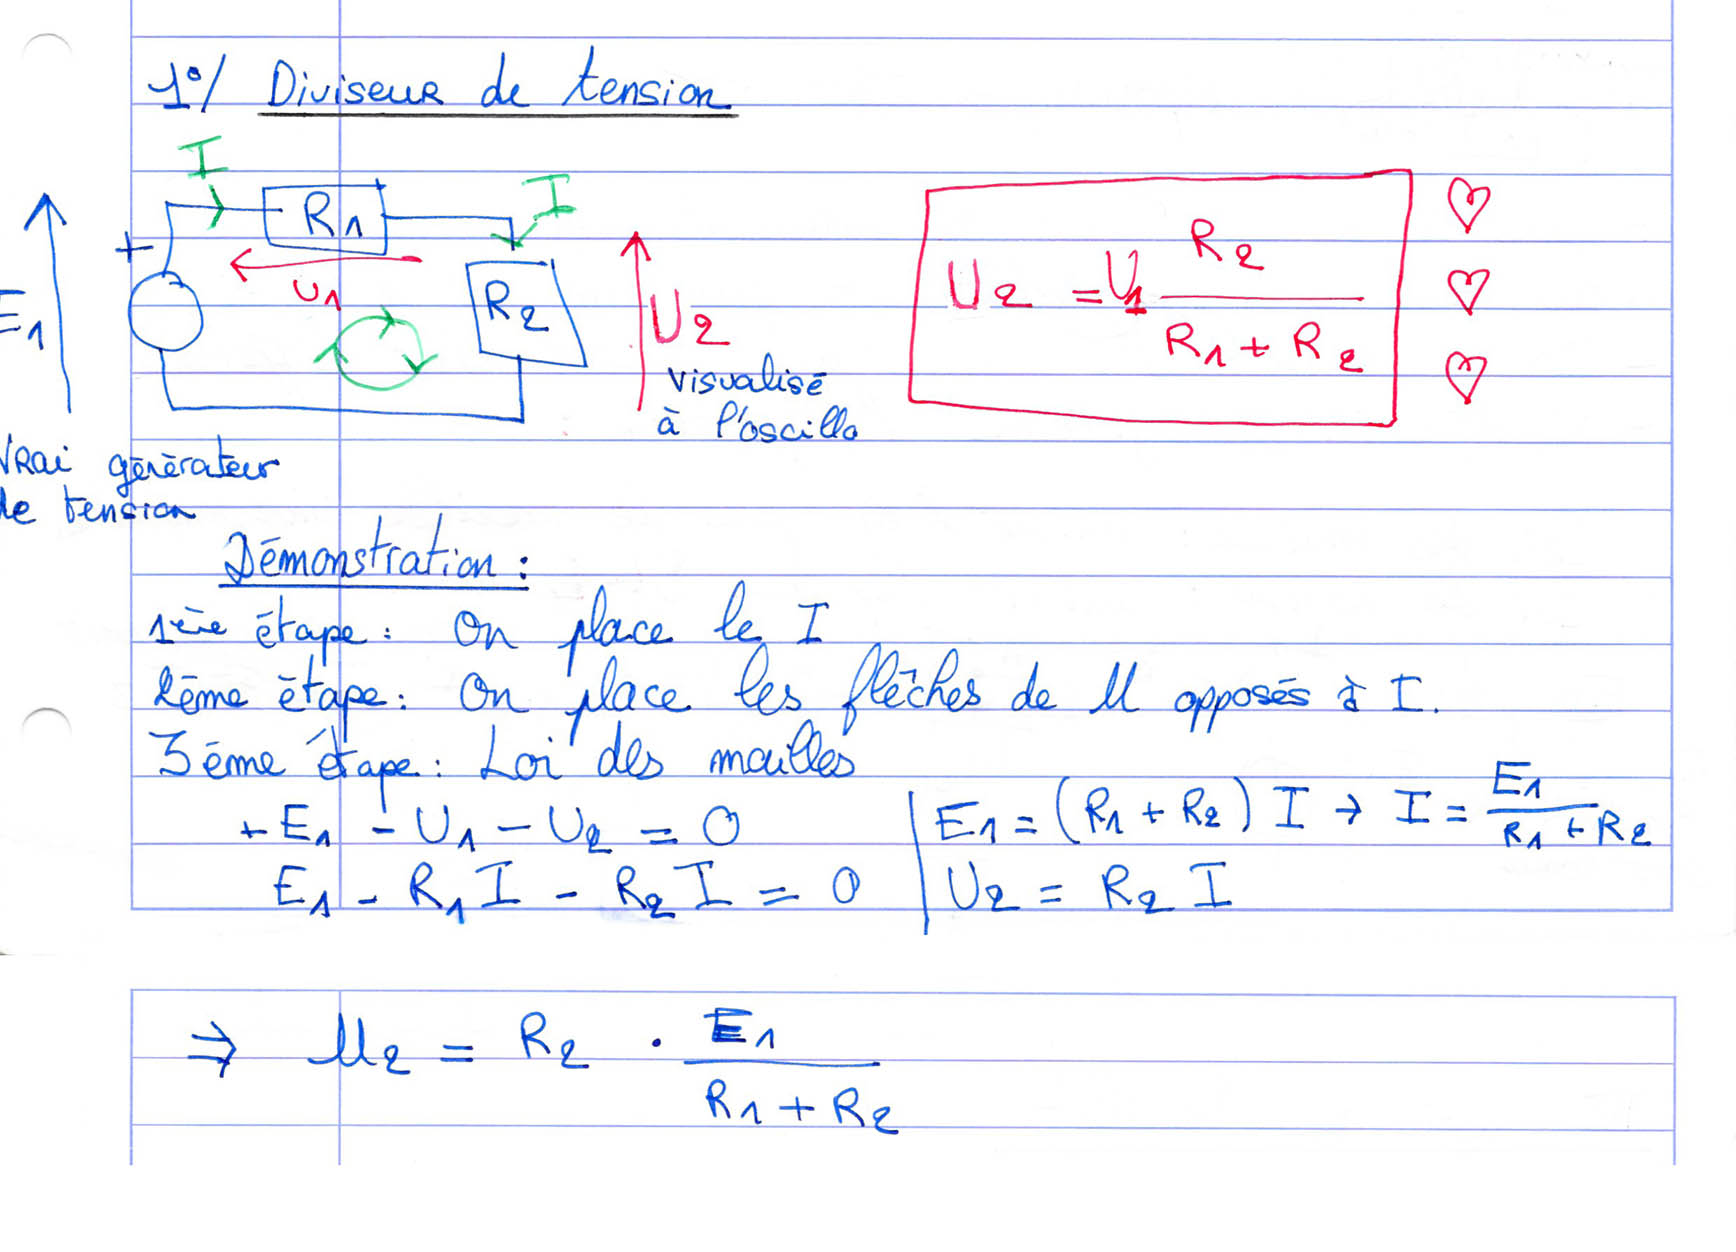 1°/ Diviseur de tension
I
R1
I
+
U1
R2
E1
U2
visualisé
à l'oscillo
U2 = U1 R2 / (R1 + R2)
♡
♡
♡
Vrai générateur
de tension
Démonstration :
1ère étape : On place le I
2ème étape : On place les flèches de U opposés à I.
3ème étape : Loi des mailles
+ E1 - U1 - U2 = 0
E1 - R1 I - R2 I = 0
E1 = (R1 + R2) I → I = E1 / (R1 + R2)
U2 = R2 I
⇒ U2 = R2 . E1 / (R1 + R2)